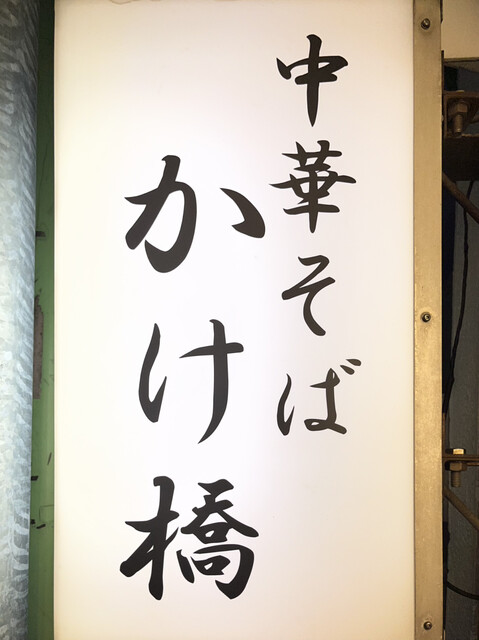 中華そば
かけ橋